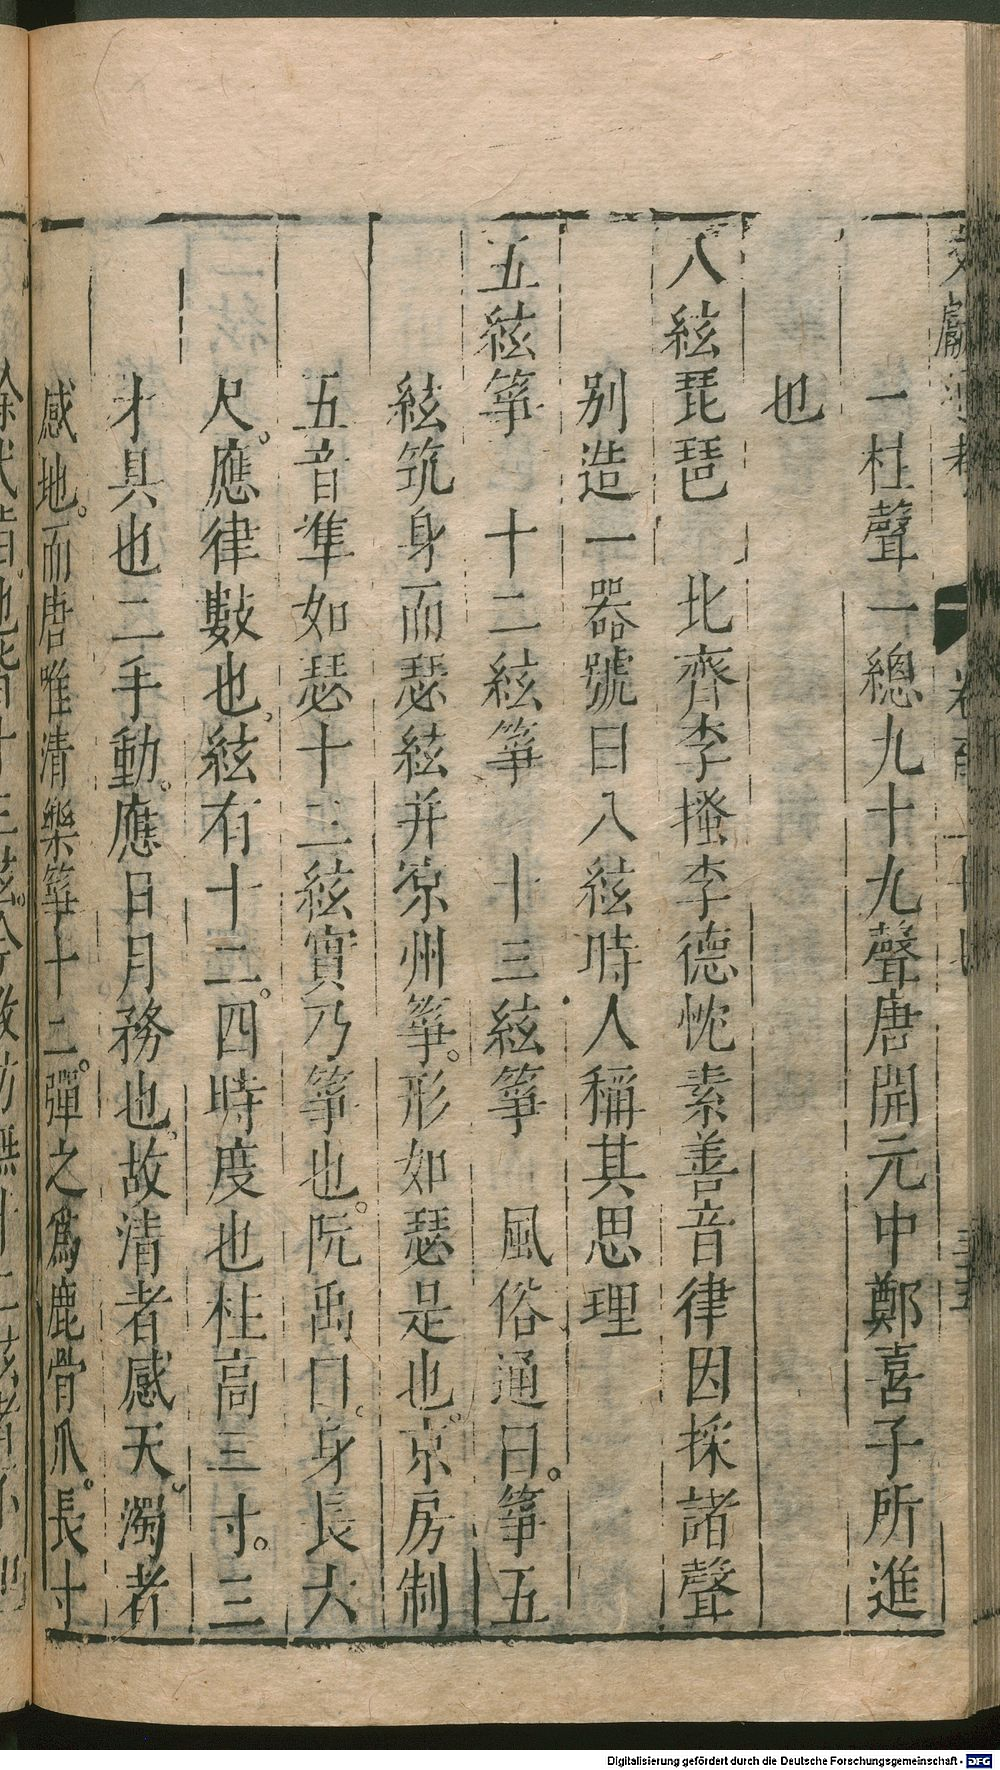 一柱聲一總九十九聲唐開元中鄭喜子所進
也
八絃琵琶　北齊李搔李德忱素善音律因採諸聲
別造一器號曰八絃時人稱其思理
五絃箏　十二絃箏　十三絃箏　風俗通曰。箏五
絃筑身而瑟絃并涼州箏。形如瑟是也。京房制
五音準如瑟十三絃實乃箏也。阮禹曰。身長六
尺。應律數也。絃有十二。四時度也柱高三寸。三
才具也二手動。應日月務也。故清者感天。濁者
感地。而唐唯清樂箏十二。彈之爲鹿骨爪。長寸
Digitalisierung gefördert durch die Deutsche Forschungsgemeinschaft - DFG